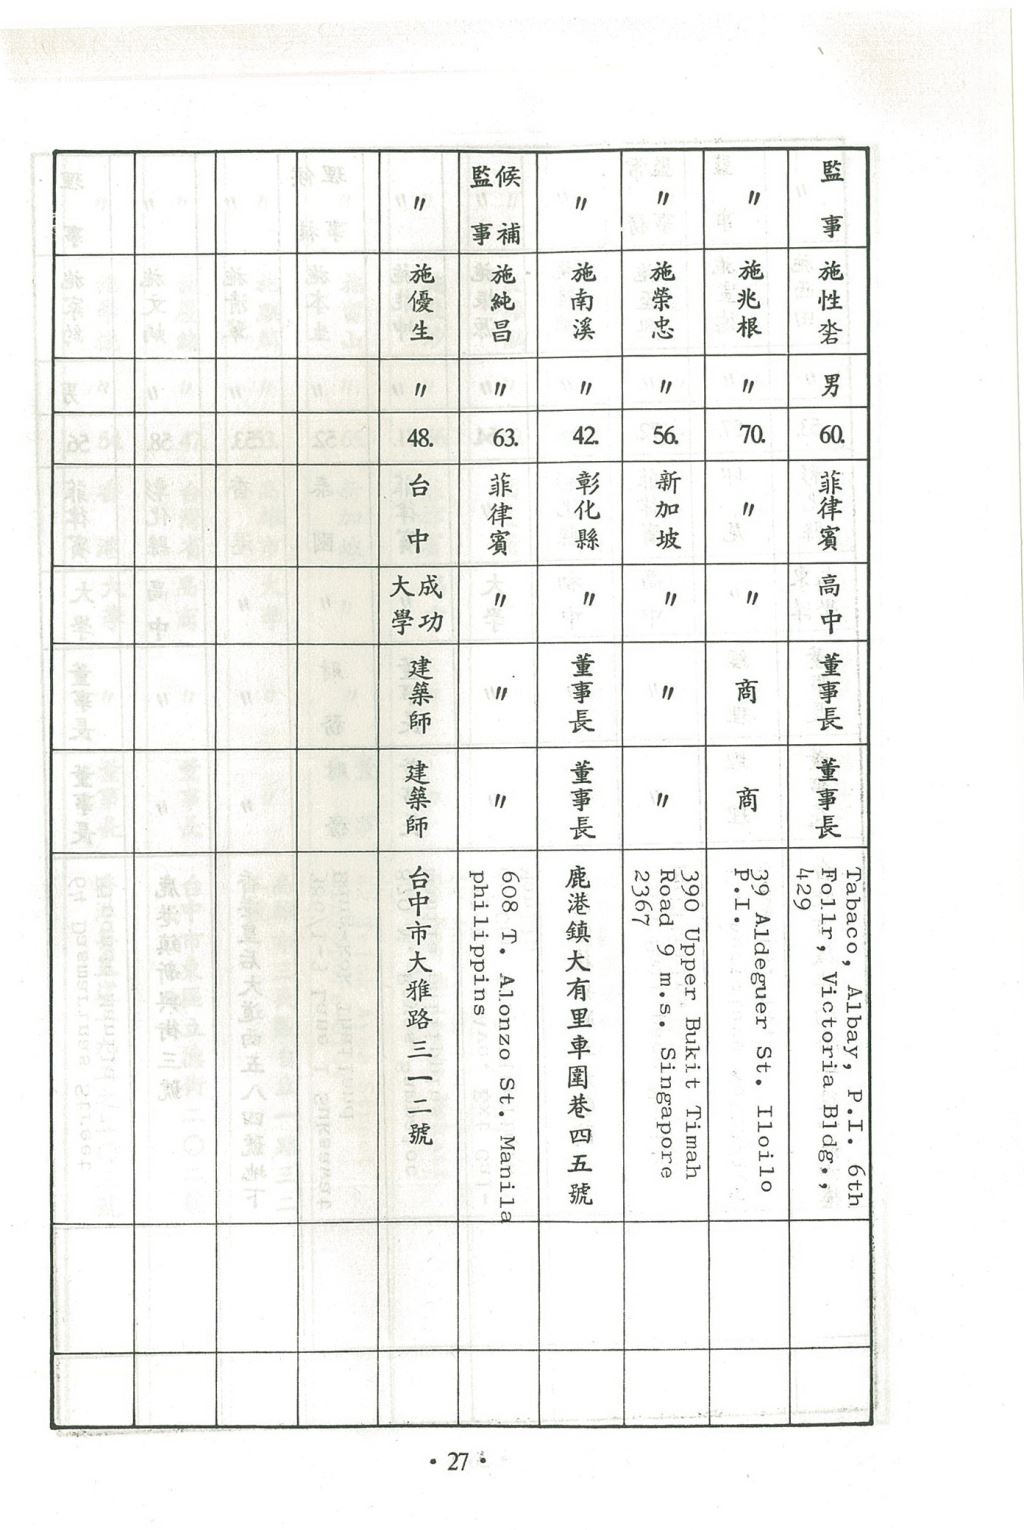 監事
施性砦
男
60.
菲律賓
高中
董事長
董事長
Tabaco, Albay, P.I. 6th
Follr, Victoria Bldg.,
429
〃
施兆根
〃
70.
〃
〃
商
商
39 Aldeguer St. Iloilo
P.I.
〃
施榮忠
〃
56.
新加坡
〃
〃
〃
390 Upper Bukit Timah
Road 9 m.s. Singapore
2367
〃
施南溪
〃
42.
彰化縣
〃
董事長
董事長
鹿港鎮大有里車圍巷四五號
候補
監事
施純昌
〃
63.
菲律賓
〃
〃
〃
608 T. Alonzo St. Manila
philippins
〃
施優生
〃
48.
台中
成功
大學
建築師
建築師
台中市大雅路三一二號
• 27 •